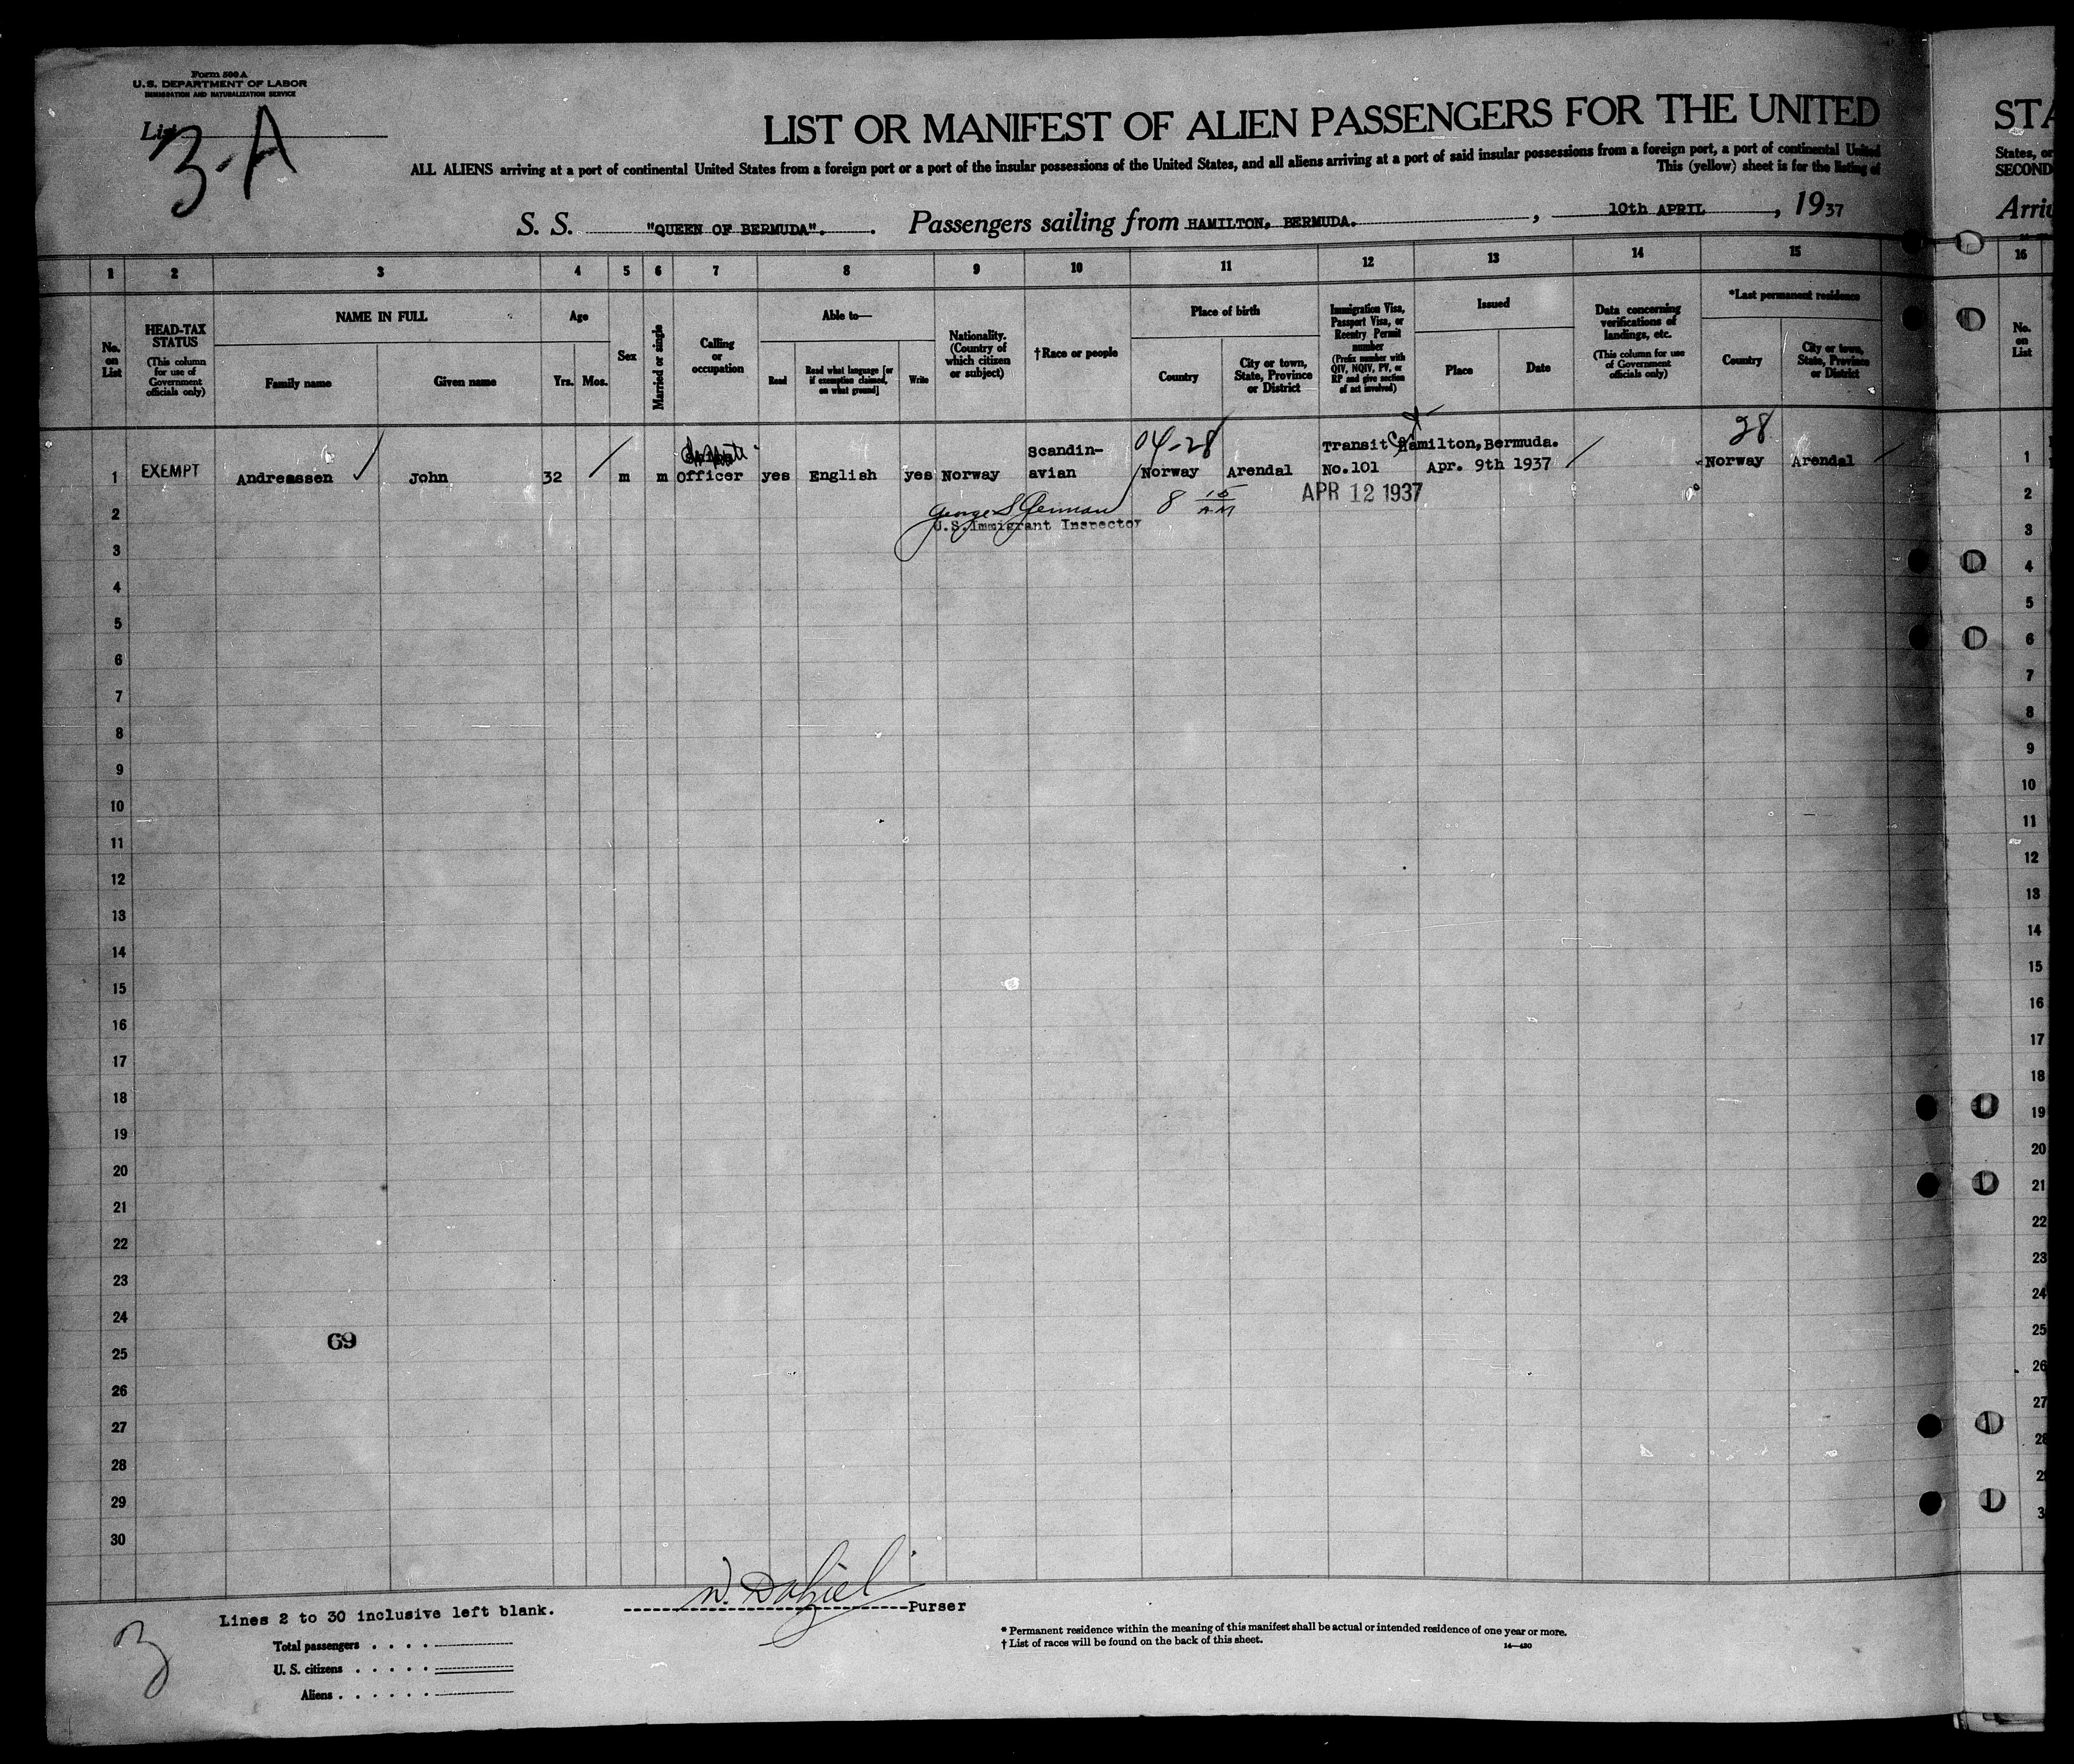 Form 500 A
U.S. DEPARTMENT OF LABOR
IMMIGRATION AND NATURALIZATION SERVICE
List
3-A
LIST OR MANIFEST OF ALIEN PASSENGERS FOR THE UNITED
ALL ALIENS arriving at a port of continental United States from a foreign port or a port of the insular possessions of the United States, and all aliens arriving at a port of said insular possessions from a foreign port, a port of continental United
This (yellow) sheet is for the listing of
S. S. "QUEEN OF BERMUDA". Passengers sailing from HAMILTON, BERMUDA. , 10th APRIL , 1937
STA
States, or
SECOND
Arri
1 2 3 4 5 6 7 8 9 10 11 12 13 14 15 16
No. on List
HEAD-TAX STATUS
(This column for use of Government officials only)
NAME IN FULL
Family name
Given name
Age
Yrs.
Mos.
Sex
Married or single
Calling or occupation
Able to—
Read
Read what language [or if exemption claimed, on what ground]
Write
Nationality. (Country of which citizen or subject)
†Race or people
Place of birth
Country
City or town, State, Province or District
Immigration Visa, Passport Visa, or Reentry Permit number
(Prefix number with QIV, NQIV, PV, or RP and give section of act involved)
Issued
Place
Date
Data concerning verifications of landings, etc.
(This column for use of Government officials only)
*Last permanent residence
Country
City or town, State, Province or District
No. on List
04-28
28
Scandin-
Transit Hamilton, Bermuda.
1 EXEMPT Andreassen John 32 m m Officer yes English yes Norway avian Norway Arendal No.101 Apr. 9th 1937 Norway Arendal 1
George S German 8 15 AM APR 12 1937
U.S. Immigrant Inspector
2 2
3 3
4 4
5 5
6 6
7 7
8 8
9 9
10 10
11 11
12 12
13 13
14 14
15 15
16 16
17 17
18 18
19 19
20 20
21 21
22 22
23 23
24 24
69
25 25
26 26
27 27
28 28
29 2
30 3
W. Dalziel
Purser
Lines 2 to 30 inclusive left blank.
Total passengers . . . .
U. S. citizens . . . . .
Aliens . . . . . .
3
* Permanent residence within the meaning of this manifest shall be actual or intended residence of one year or more.
† List of races will be found on the back of this sheet.
14—430